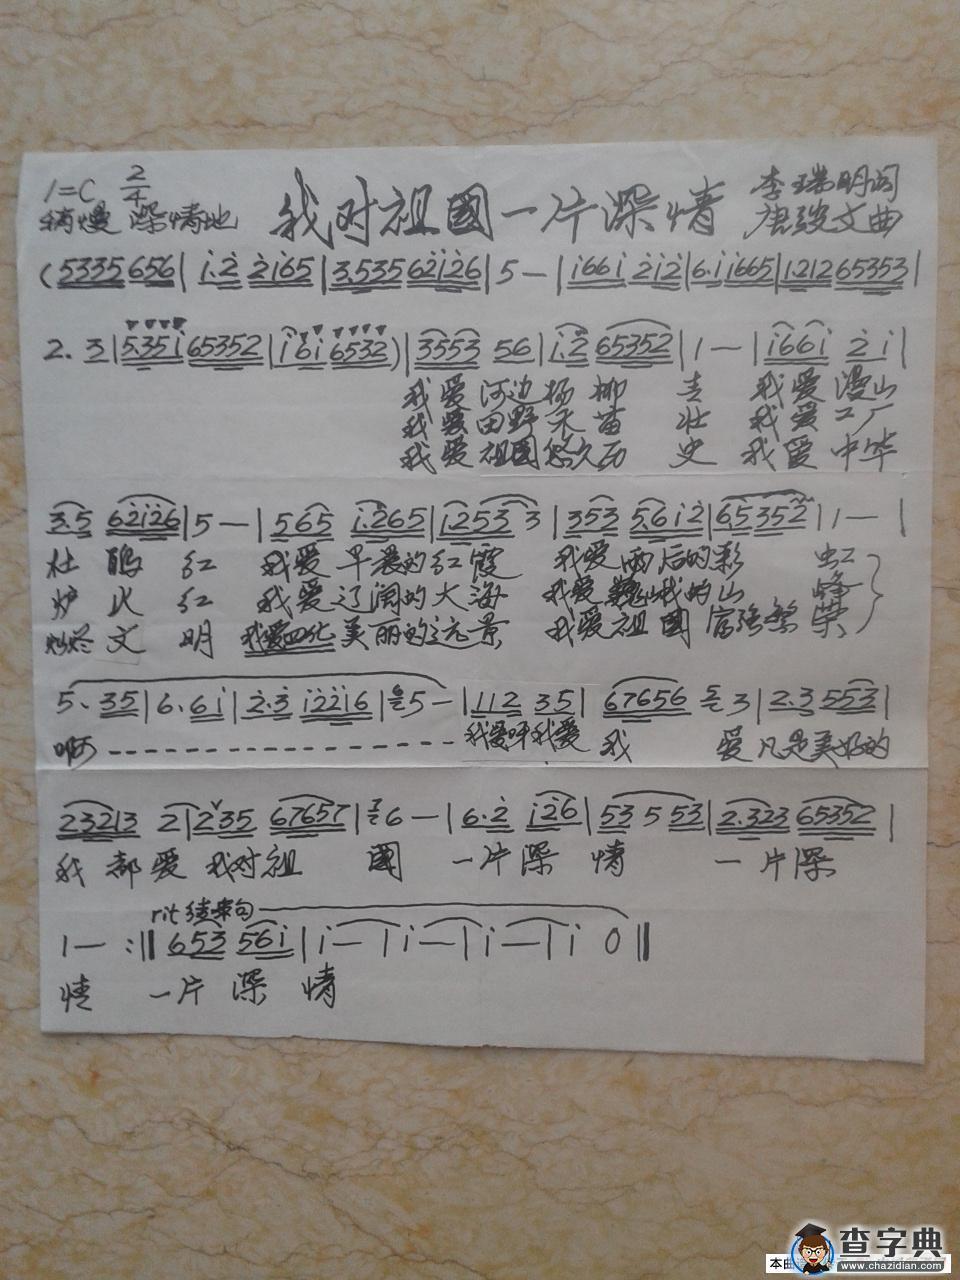 1=C 2/4 我对祖國一片深情 李瑞明词
稍慢 深情地 唐毅文曲
(5335 656 | i.2 2i65 | 3.535 62i26 | 5 — | i66i 2i2 | 6.i i665 | 1.212 65353 |
2. 3 | 5.35i 65352 | i6i 6532) | 3553 56 | i.2 65352 | 1 — | i66i 2 i |
我爱河边杨柳 青 我爱漫山
我爱田野禾苗 壮 我爱工厂
我爱祖国悠久历 史 我爱中华
3.5 62i26 | 5 — | 565 i.265 | i253 3 | 353 5.6i2 | 6.5352 | 1 — |
杜鹃 红 我爱早晨的红霞 我爱雨后的彩 虹
炉火 红 我爱辽阔的大海 我爱巍峨的山 峰
灿烂文 明 我爱四化美丽的远景 我爱祖國富强繁 荣
5. 35 | 6. 6i | 2.3 i22i6 | 5 — | 112 35 | 67656 3 | 2.3 553 |
啊 - - - - - - - - - - - - - - - - 我爱呀我爱 我 爱凡是美好的
23213 2 | 235 67657 | 6 — | 6.2 i26 | 53 5 53 | 2.323 65352 |
我都爱 我对祖 國 一片深 情 一片深
rit 结束句
1 — :‖ 653 56i | i — | i — | i — | i 0 ‖
情 一片深 情
查字典
www.chazidian.com